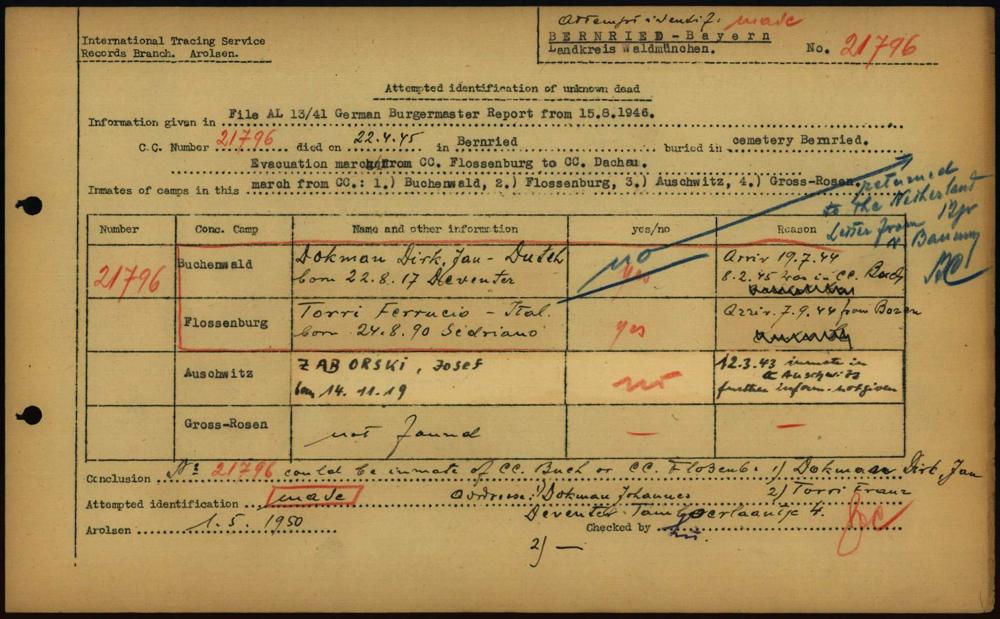 Attempt identif: made
International Tracing Service
Records Branch. Arolsen.
BERNRIED - Bayern
Landkreis Waldmünchen.
No. 21796
Attempted identification of unknown dead
Information given in File AL 13/41 German Burgermaster Report from 15.8.1946.
C.C. Number 21796 died on 22.4.45 in Bernried buried in cemetery Bernried.
Evacuation march from CC. Flossenburg to CC. Dachau.
Inmates of camps in this march from CC.: 1.) Buchenwald, 2.) Flossenburg, 3.) Auschwitz, 4.) Gross-Rosen
returned
to the Netherland
Letter from
Number Conc. Camp Name and other information yes/no Reason
21796 Buchenwald Dokman Dirk, Jan - Dutch
born 22.8.17 Deventer
no yes
Arriv 19.7.44
8.2.45 was in CC. Buch
Flossenburg Torri Ferrucio - Ital.
born 24.8.90 Sedriano
yes
Arriv. 7.9.44 from Bozen
Auschwitz ZABORSKI, Josef
born 14.11.19
no
12.3.43 inmate in
Auschwitz
further inform. not given
Gross-Rosen not found — —
Conclusion No 21796 could be inmate of CC. Buch or CC. Floßenb: 1) Dokman Dirk, Jan
2) Torri Franz
Attempted identification made Address: 1) Dokman Johannes
Deventer
Arolsen 1.5.1950
Checked by
2) —